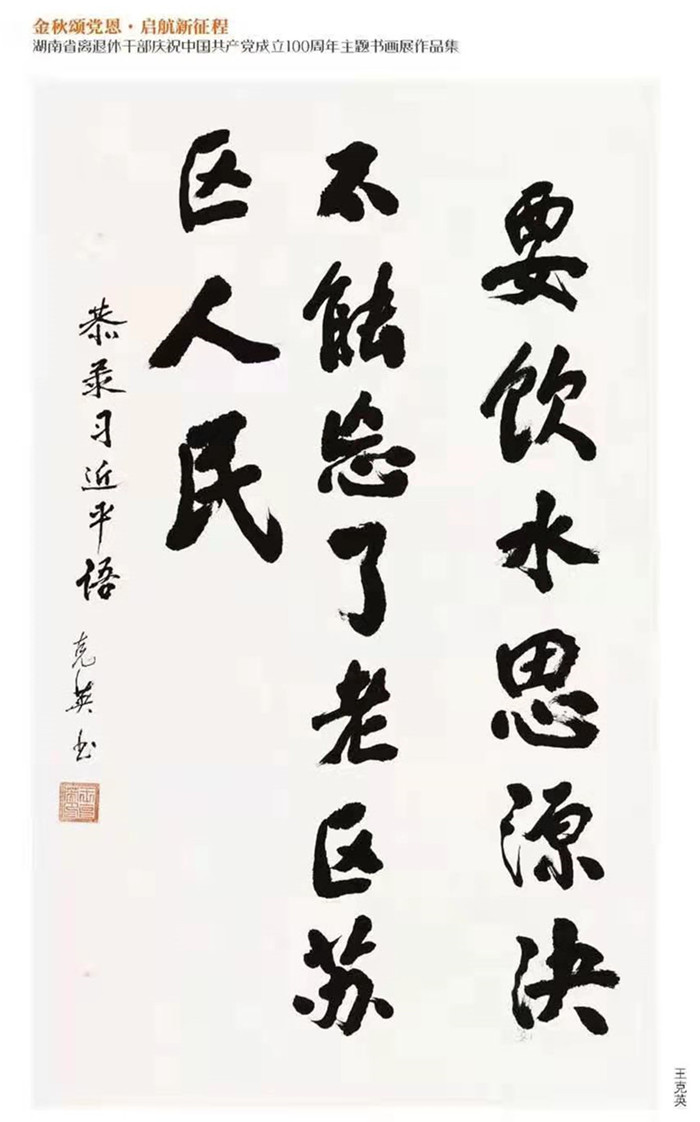 金秋颂党恩·启航新征程
湖南省离退休干部庆祝中国共产党成立100周年主题书画展作品集
要饮水思源决
不能忘了老区苏
区人民
恭录习近平语 克英书
王克英